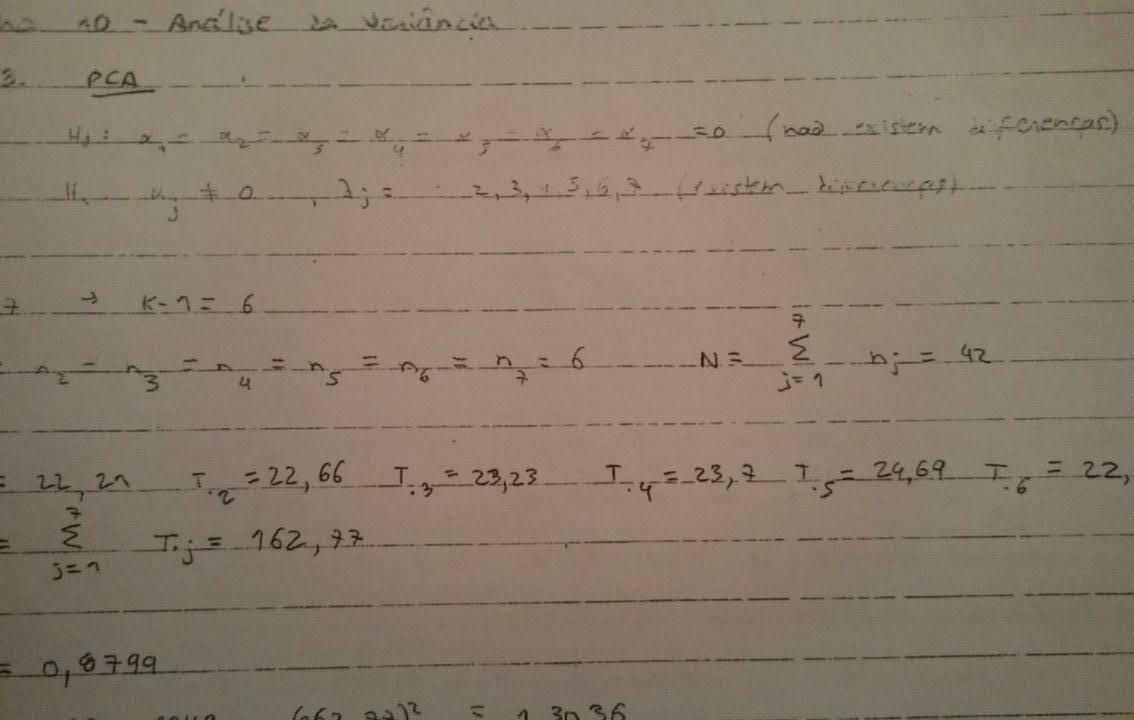 10 - Análise da Variância
3. PCA
H0: α1 = α2 = α3 = α4 = α5 = α6 = α7 = 0 (não existem diferenças)
αj ≠ 0 , j = 2, 3, 5, 6, 7 (existem diferenças)
7 → K-1 = 6
n2 = n3 = n4 = n5 = n6 = n7 = 6 N = Σ j=1 7 nj = 42
= 22,21 T.2 = 22,66 T.3 = 23,23 T.4 = 23,7 T.5 = 24,69 T.6 = 22,
= Σ j=1 7 T.j = 162,77
= 0,8799
= 1,3036